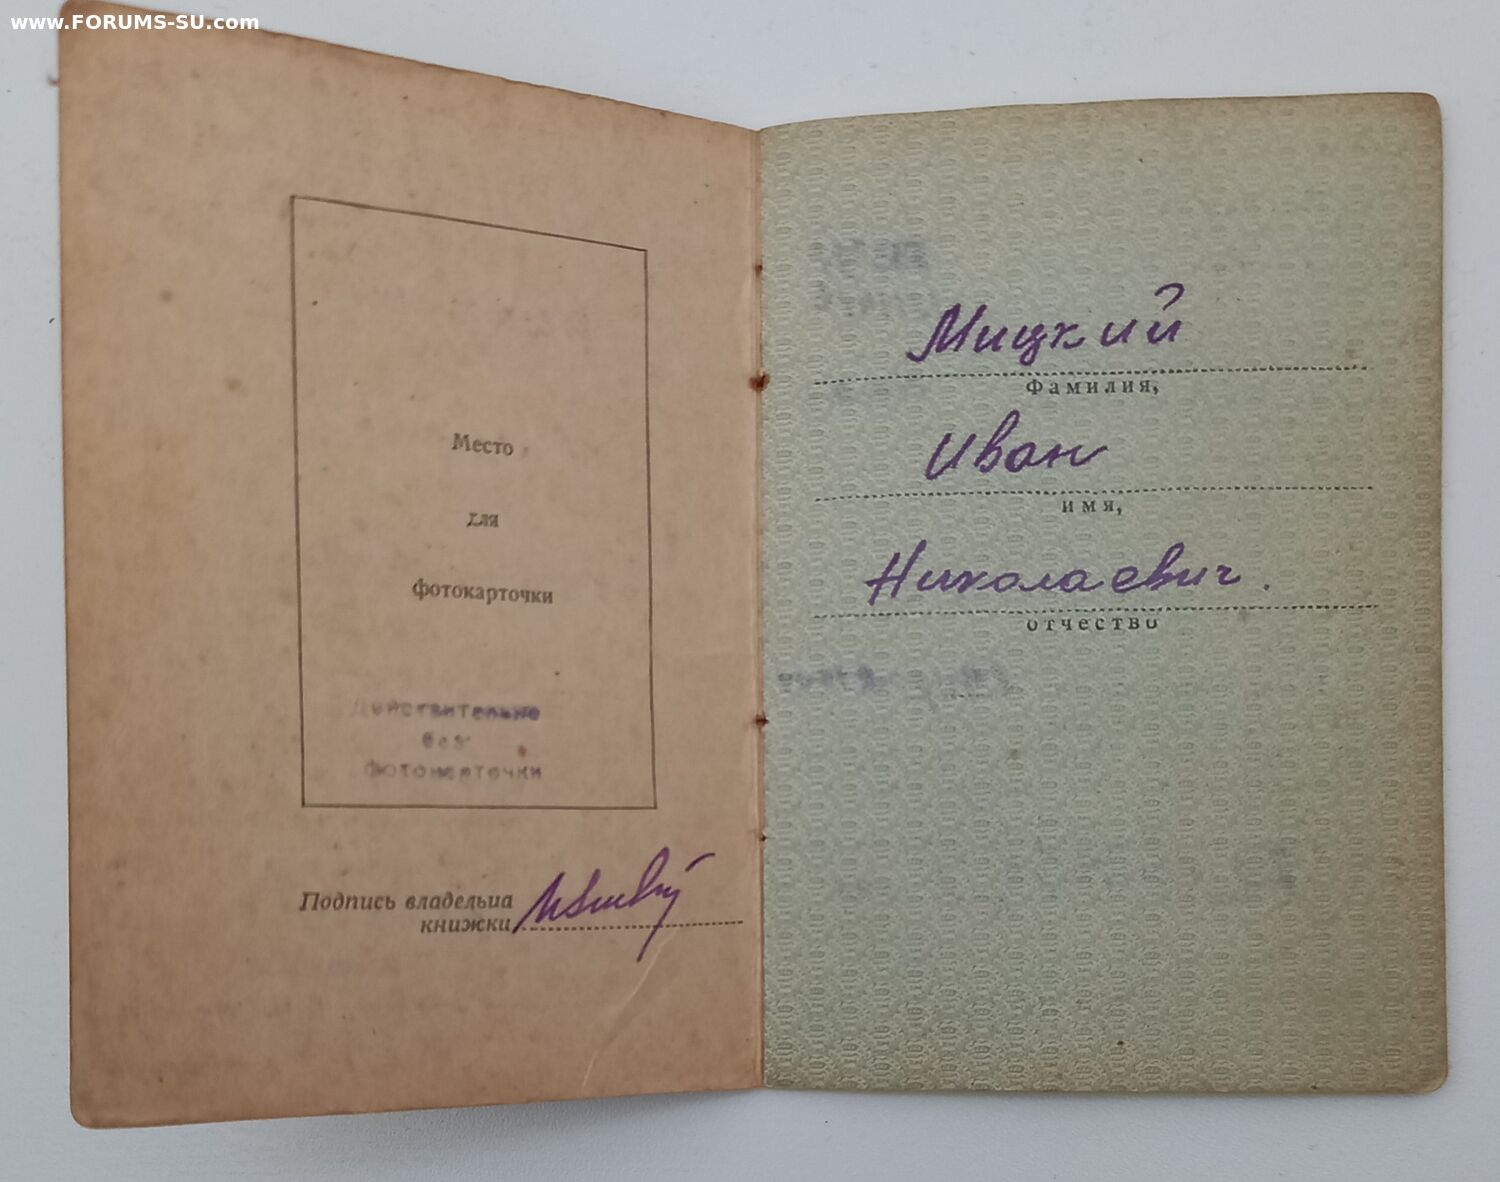 www.FORUMS-SU.com
Место
для
фотокарточки
Действительно
без
фотокарточки
Подпись владельца
книжки
Мицкий
Фамилия,
Иван
имя,
Николаевич.
отчество